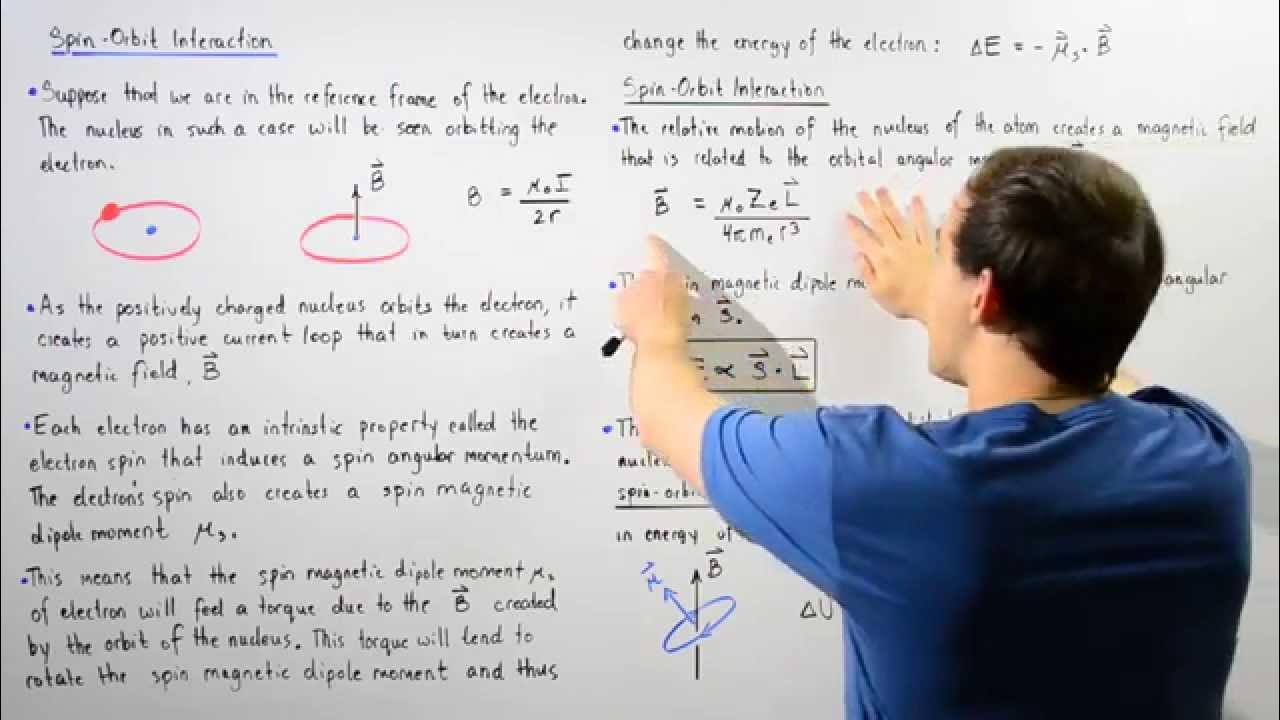 Spin-Orbit Interaction
•Suppose that we are in the reference frame of the electron.
The nucleus in such a case will be seen orbitting the
electron.
B⃗
B = μ₀I / 2r
•As the positively charged nucleus orbits the electron, it
creates a positive current loop that in turn creates a
magnetic field, B⃗
•Each electron has an intrinstic property called the
electron spin that induces a spin angular momentum.
The electron's spin also creates a spin magnetic
dipole moment μₛ.
•This means that the spin magnetic dipole moment μₛ
of electron will feel a torque due to the B⃗ created
by the orbit of the nucleus. This torque will tend to
rotate the spin magnetic dipole moment and thus
change the energy of the electron: ΔE = -μ⃗ₛ · B⃗
Spin-Orbit Interaction
•The relative motion of the nucleus of the atom creates a magnetic field
that is related to the orbital angular
B⃗ = μ₀ZeL⃗ / 4πmₑr³
magnetic dipole angular
S⃗.
∝ S⃗ · L⃗
in energy
B⃗
μ⃗
ΔU